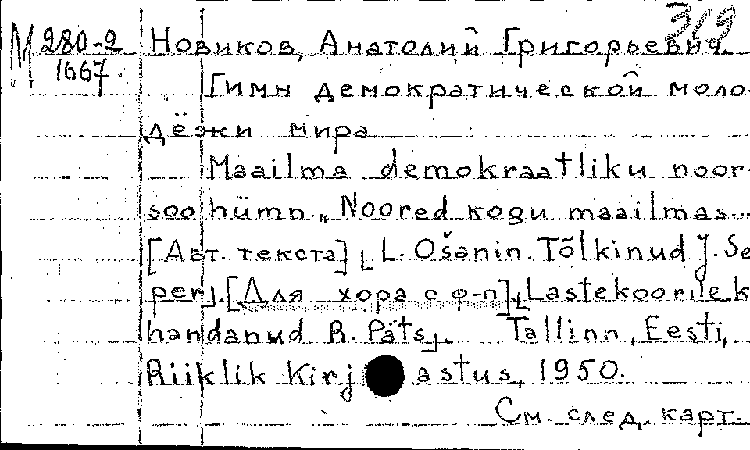 319
М 280-2 Новиков, Анатолий Григорьевич.
1667. Гимн демократической моло-
дёжи мира
Maailma demokraatliku noor-
soo hümn „Noored kogu maailmas..."
[Авт. текста] L. Ošanin. Tõlkinud J. Se-
per]. [Для хора с ф-п], Lastekoorile k
handanud R. Päts]. Tallinn, Eesti,
Riiklik Kirj astus, 1950.
См. след. карт.